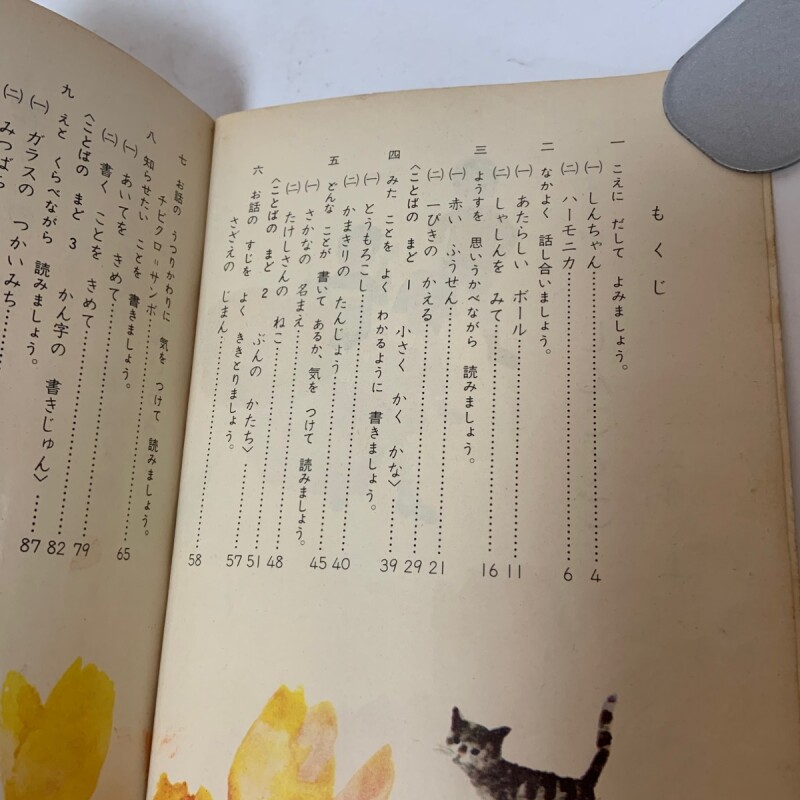 もくじ
一 こえに だして よみましょう。
㈠ しんちゃん……4
㈡ ハーモニカ……6
二 なかよく 話し合いましょう。
㈠ あたらしい ボール……11
㈡ しゃしんを みて……16
三 ようすを 思いうかべながら 読みましょう。
㈠ 赤い ふうせん……21
㈡ 一ぴきの かえる……29
〈ことばの まど 1 小さく かく かな〉……39
四 みた ことを よく わかるように 書きましょう。
㈠ とうもろこし……40
㈡ かまきりの たんじょう……45
五 どんな ことが 書いて あるか、気を つけて 読みましょう。
㈠ さかなの 名まえ……48
㈡ たけしさんの ねこ……51
〈ことばの まど 2 ぶんの かたち〉……57
六 お話の すじを よく ききとりましょう。
さざえの じまん……58
七 お話の うつりかわりに 気を つけて 読みましょう。
チビクロ=サンボ……65
八 知らせたい ことを 書きましょう。
㈠ あいてを きめて……79
㈡ 書く ことを きめて……82
〈ことばの まど 3 かん字の 書きじゅん〉……87
九 えと くらべながら 読みましょう。
㈠ ガラスの つかいみち……
㈡ みつばち